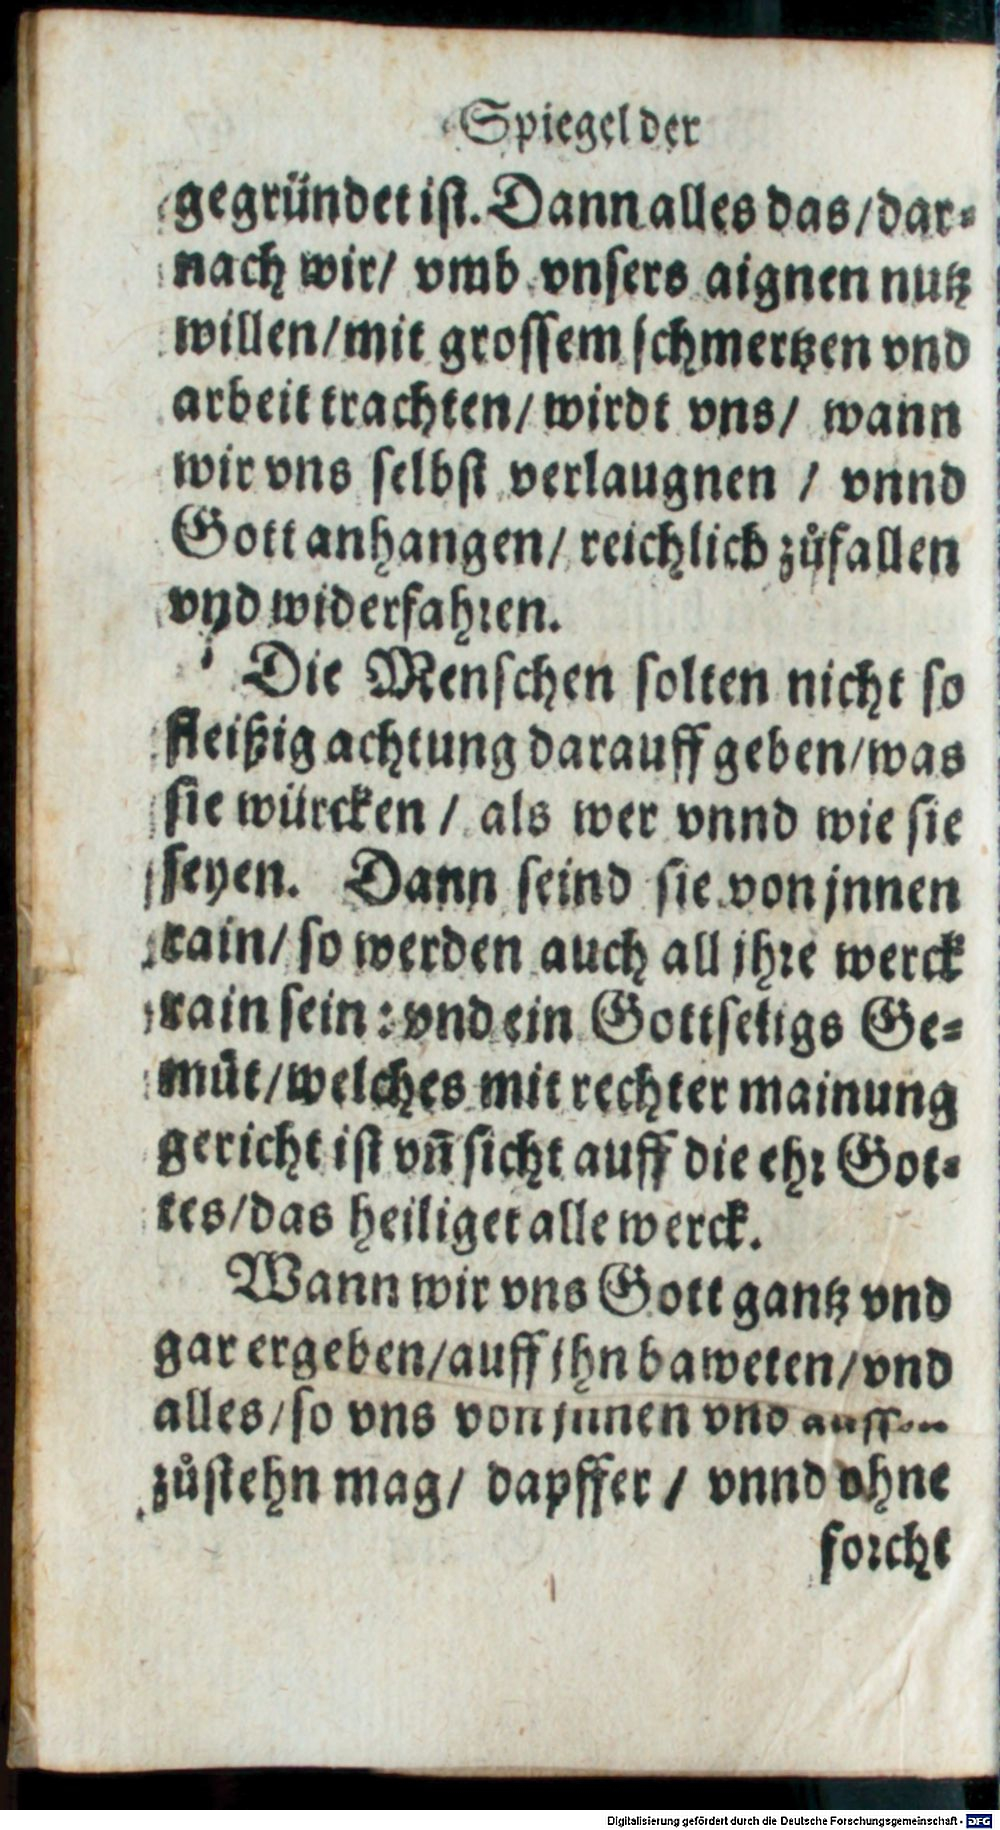 Spiegel der
gegründet ist. Dann alles das/dar⸗
nach wir/ vmb vnsers aignen nutz
willen/mit grossem schmertzen vnd
arbeit trachten/ wirdt vns/ wann
wir vns selbst verlaugnen / vnnd
Gott anhangen/ reichlich zůfallen
vnd widerfahren.
Die Menschen solten nicht so
fleißig achtung darauff geben/was
sie würcken / als wer vnnd wie sie
seyen. Dann seind sie von jnnen
rain/ so werden auch all jhre werck
rain sein: vnd ein Gottseligs Ge⸗
müt/welches mit rechter mainung
gericht ist vñ sicht auff die ehr Got⸗
tes/das heiliget alle werck.
Wann wir vns Gott gantz vnd
gar ergeben/auff jhn baweten/vnd
alles/so vns von jnnen vnd aussen
zůstehn mag/ dapffer / vnnd ohne
forcht
Digitalisierung gefördert durch die Deutsche Forschungsgemeinschaft - DFG